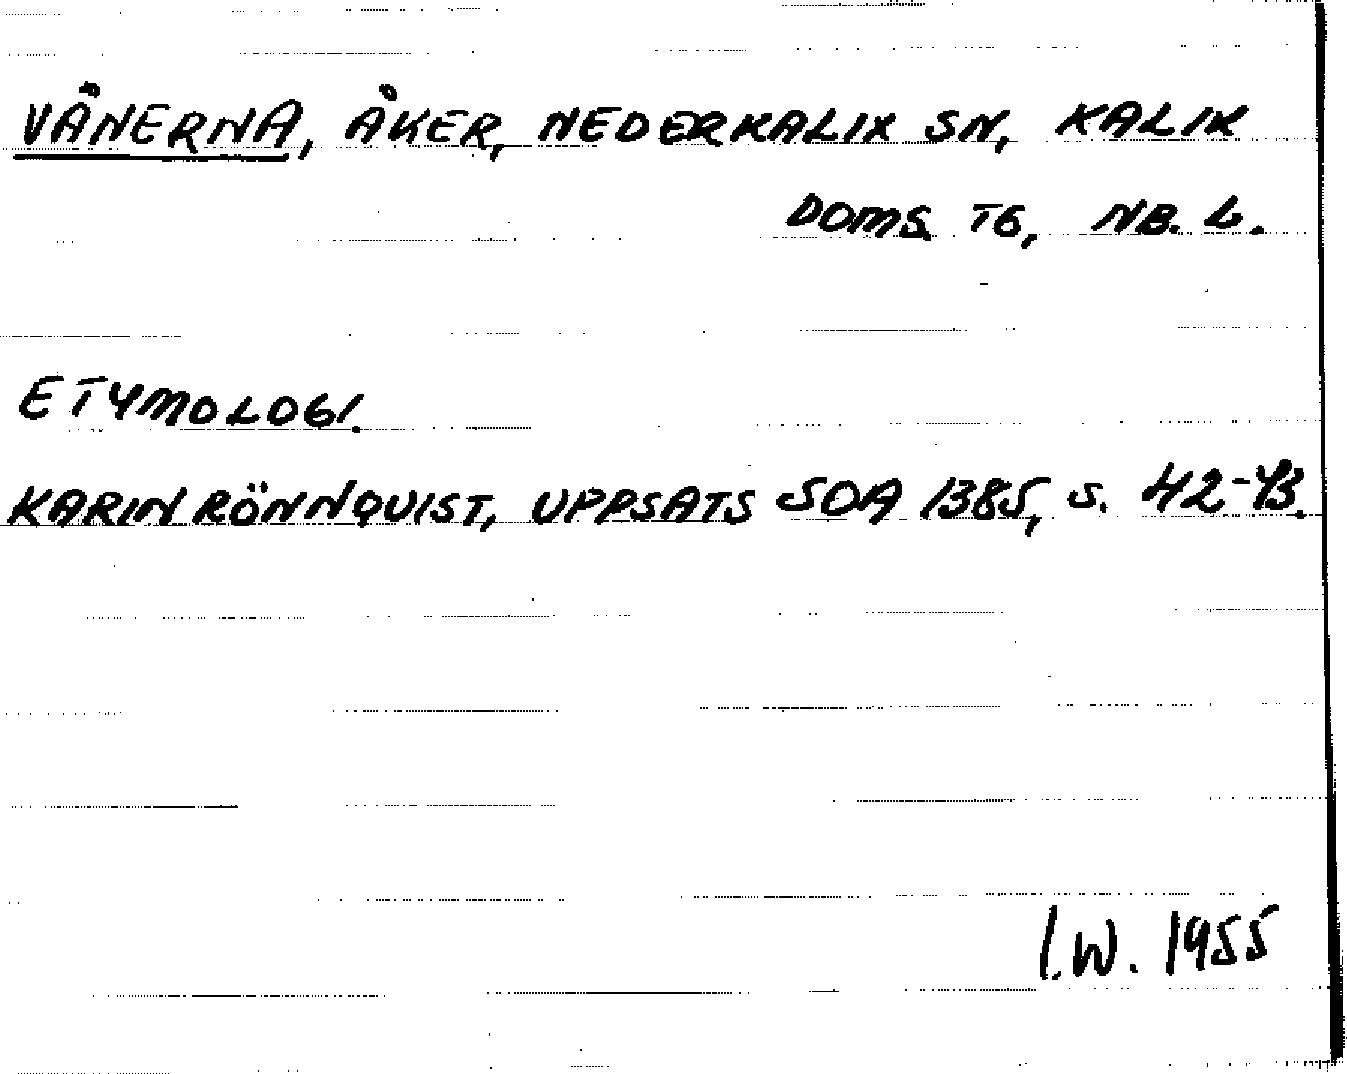 VÅNERNA, ÅKER, NEDERKALIX SN, KALIX
DOMS. TG, NB. L.
ETYMOLOGI.
KARIN RÖNNQUIST, UPPSATS SOA 1385, S. 42-43.
I.W. 1955